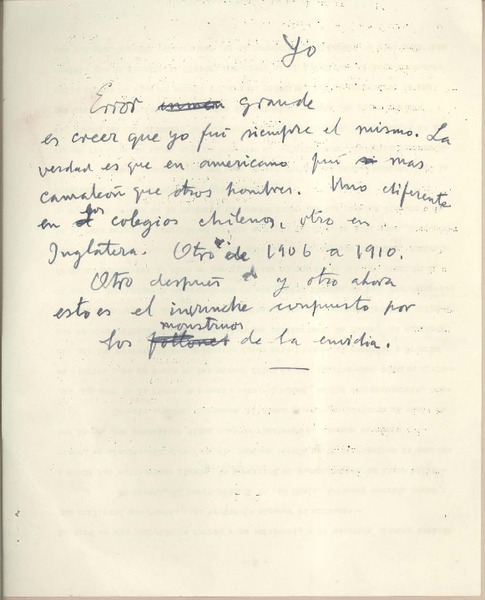 Yo
Error grande
es creer que yo fuí siempre el mismo. La
verdad es que en americano fuí mas
camaleón que otros hombres. Uno diferente
en los colegios chilenos, otro en
Inglaterra. Otro de 1906 a 1910.
Otro después y otro ahora
esto es el imbunche compuesto por
monstruos
los de la envidia.